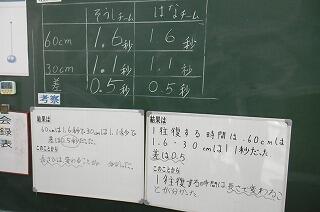 そうしチーム はなチーム
60cm 1.6秒 1.6秒
30cm 1.1秒 1.1秒
差 0.5秒 0.5秒
考察
会
録
表
結果は
60cmは1.6秒で30cmは1.1秒で
差は0.5秒だった。
このことから
長さは、変わることが
結果は
1往復する時間は、60cmは
1.6・30cmは1.1秒だった。
差は0.5
このことから
1往復する時間は長さで変わるこ
とが分かった。